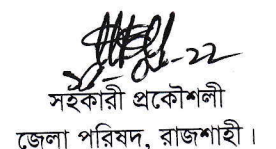 সহকারী প্রকৌশলী
জেলা পরিষদ, রাজশাহী।